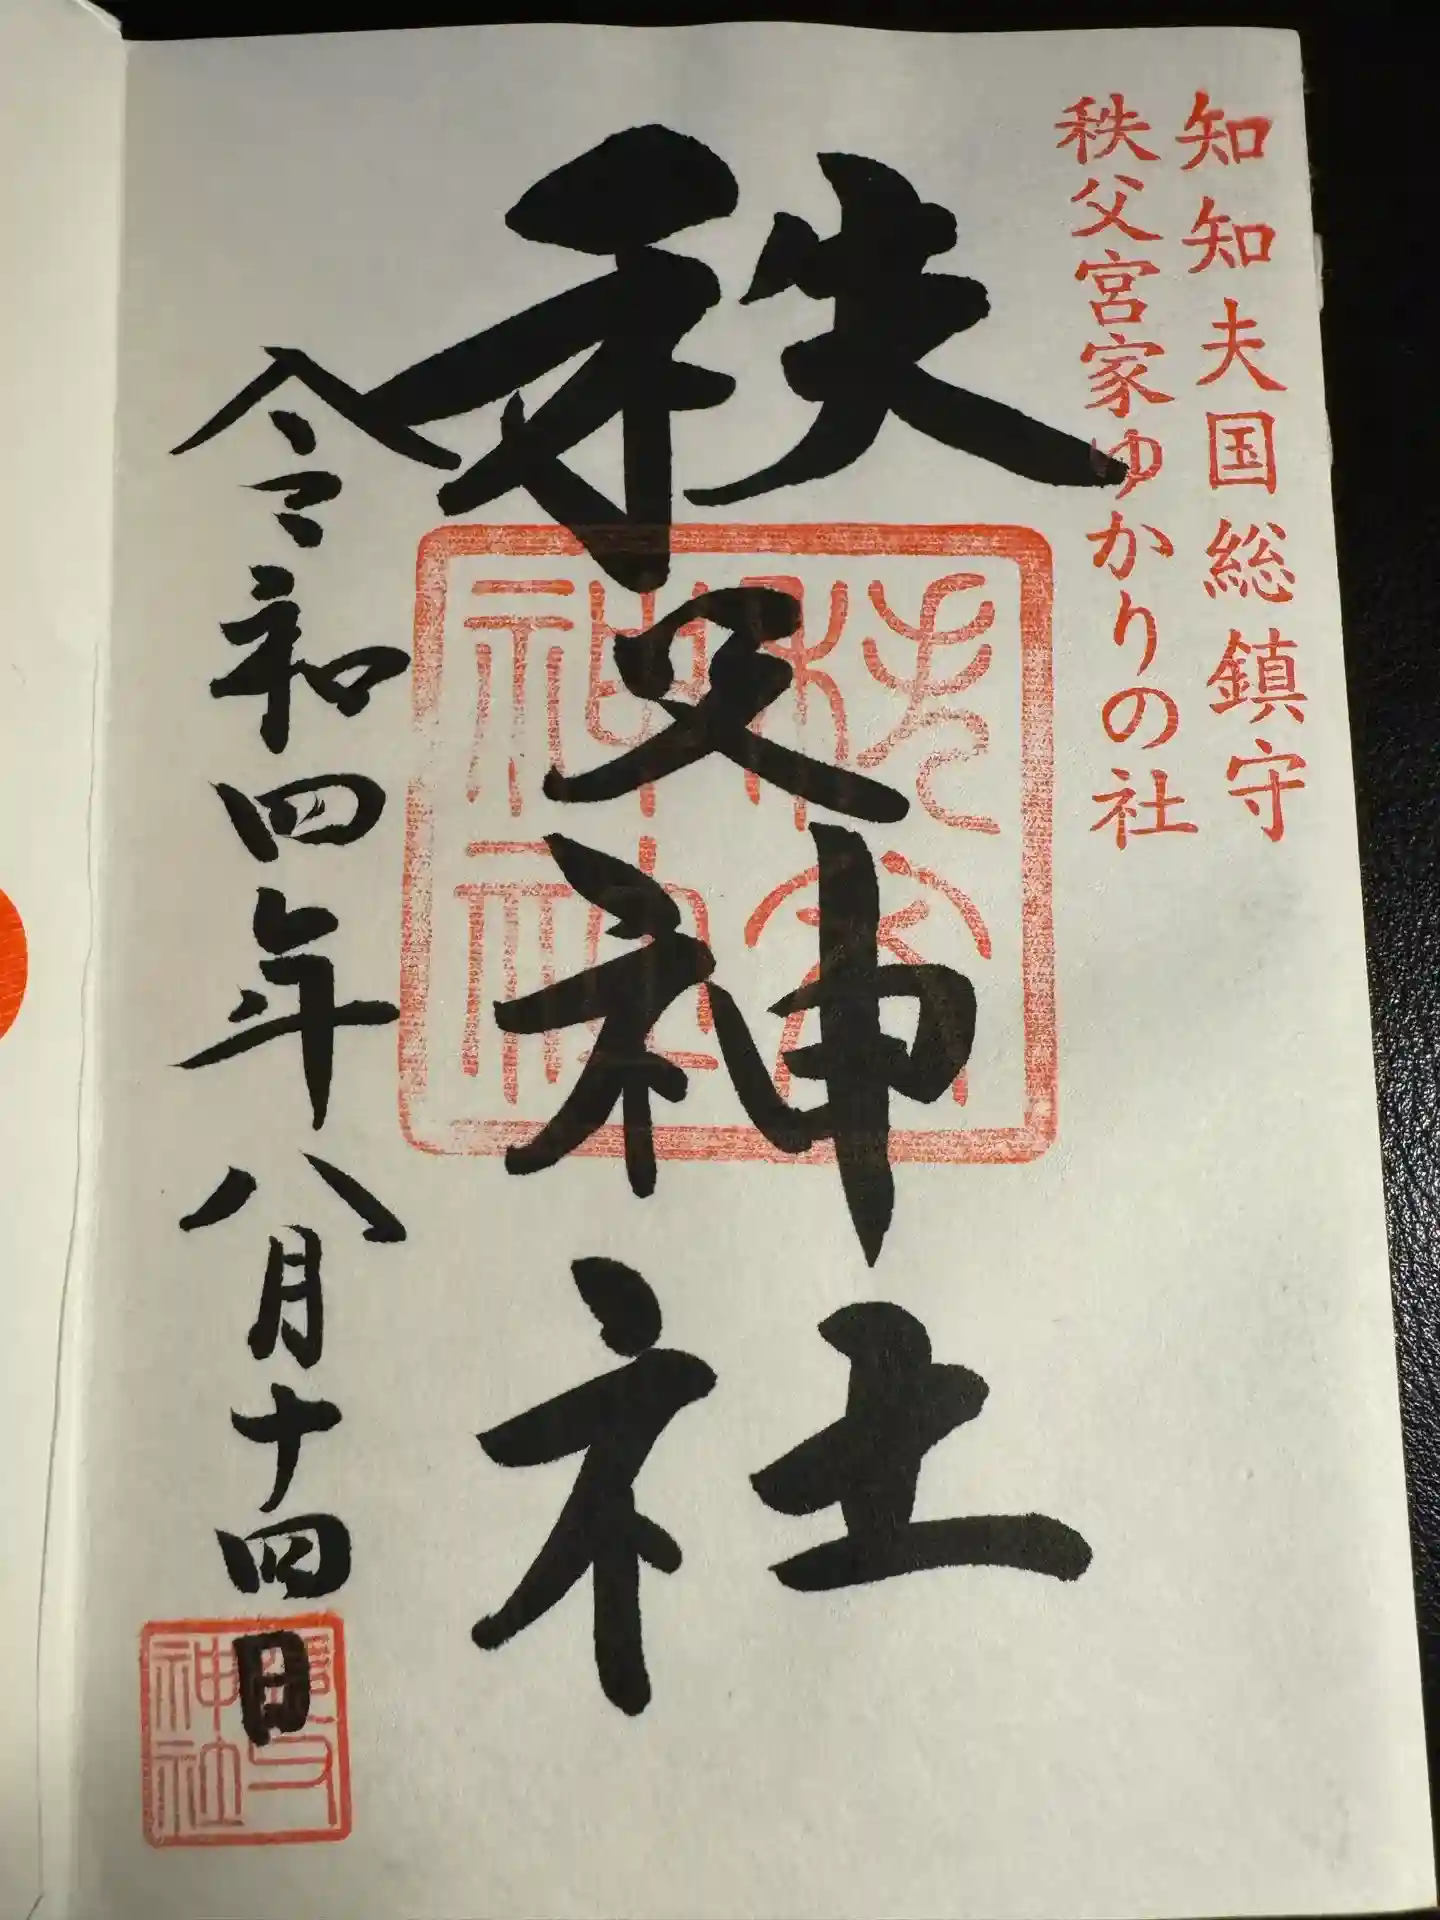 知知夫国総鎮守
秩父宮家ゆかりの社
秩父神社
秩父神社
令和四年八月十四日
神社